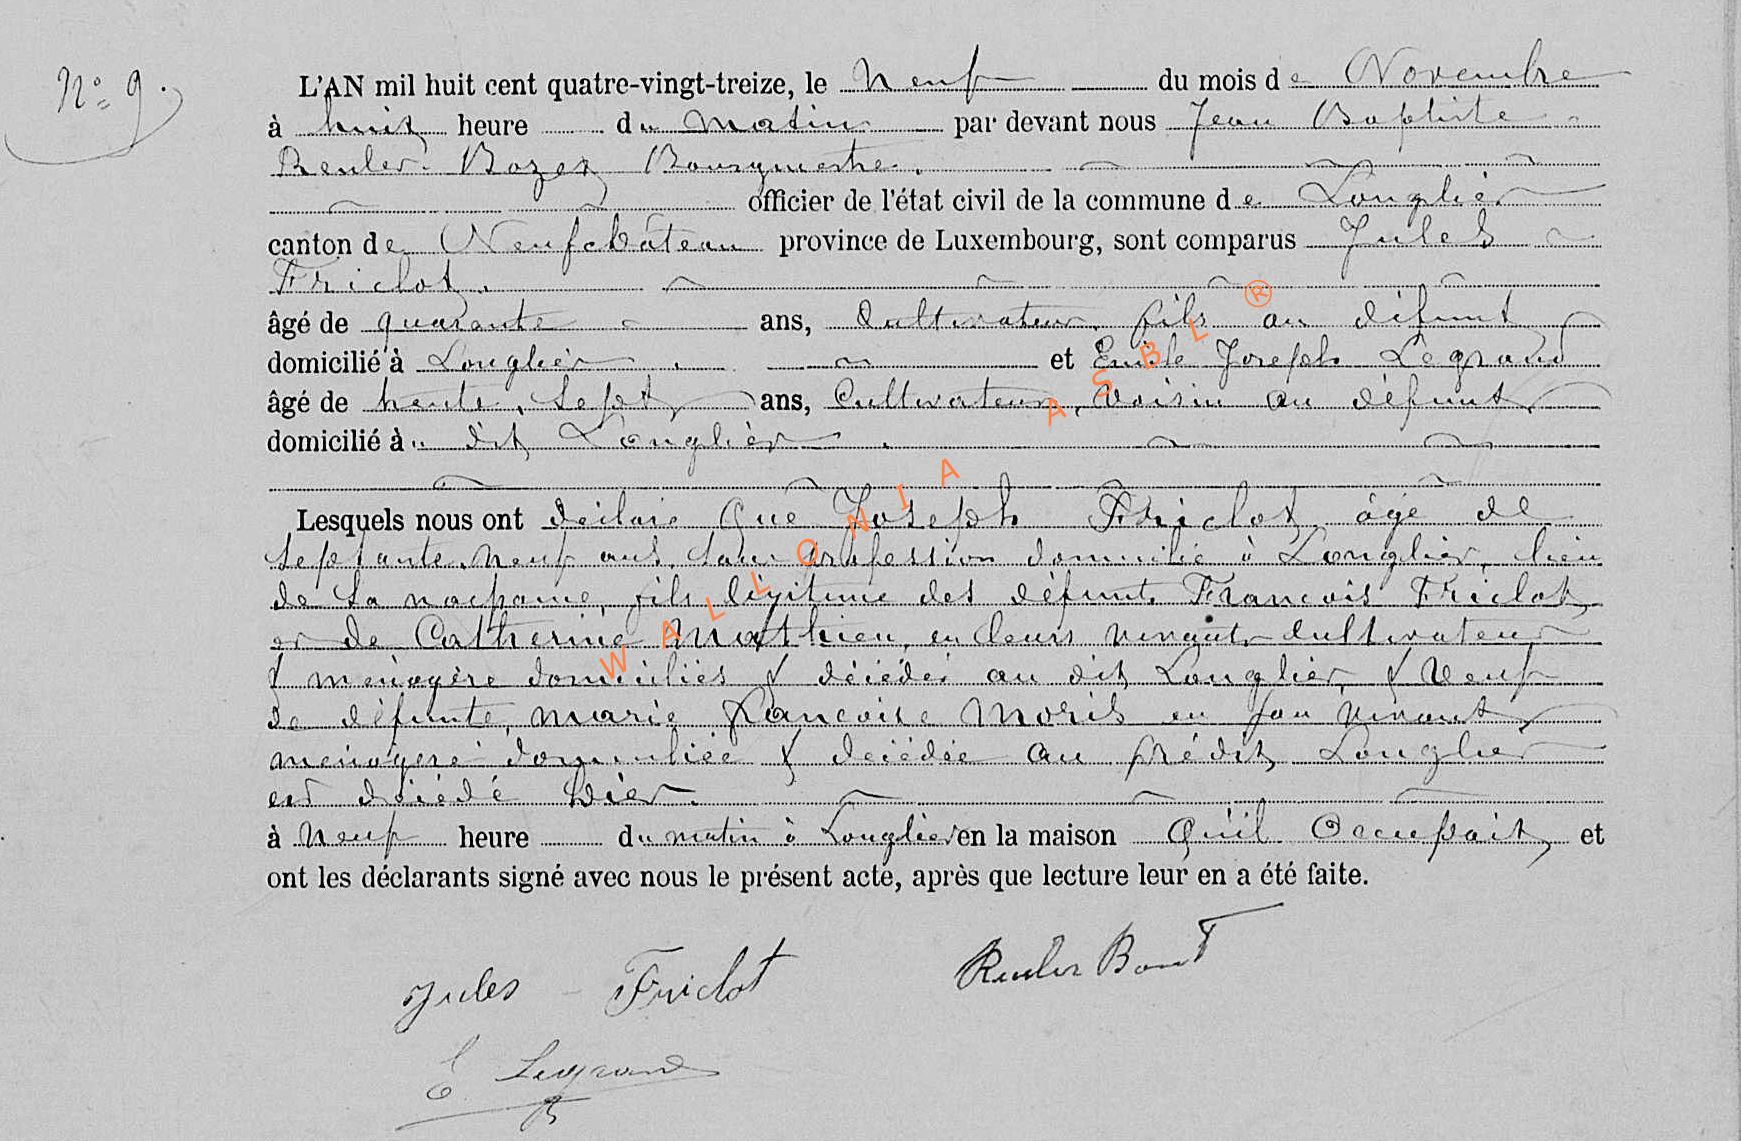 N° 9.
L'AN mil huit cent quatre-vingt-treize, le Neuf du mois de Novembre
à huit heure du matin par devant nous Jean Baptiste
Reuler Bozet Bourgmestre.
officier de l'état civil de la commune de Longlier
canton de Neufchâteau province de Luxembourg, sont comparus Jules
Friclot.
âgé de quarante ans, Cultivateur, fils au défunt
domicilié à Longlier et Emile Joseph Legrand
âgé de trente, sept ans, Cultivateur, voisin au défunt
domicilié à u dit Longlier.
Lesquels nous ont déclaré Que Joseph Friclot, âgé de
septante neuf ans, sans profession domicilié à Longlier, lieu
de sa naissance, fils légitime des défunts Francois Friclot
et de Catherine Mathieu, en leurs vivants cultivateur
& menagère domiciliés & décédés au dit Longlier, & Veuf
de défunte, marie francoise Moris en son vivant
menagère domiciliée & décédée au prédit Longlier
est décédé hier.
à Neuf heure du matin à Longlier en la maison Qu'il Occupait, et
ont les déclarants signé avec nous le présent acte, après que lecture leur en a été faite.
Jules Friclot Reuler
E Legrand
WALLONIA ASBL ®